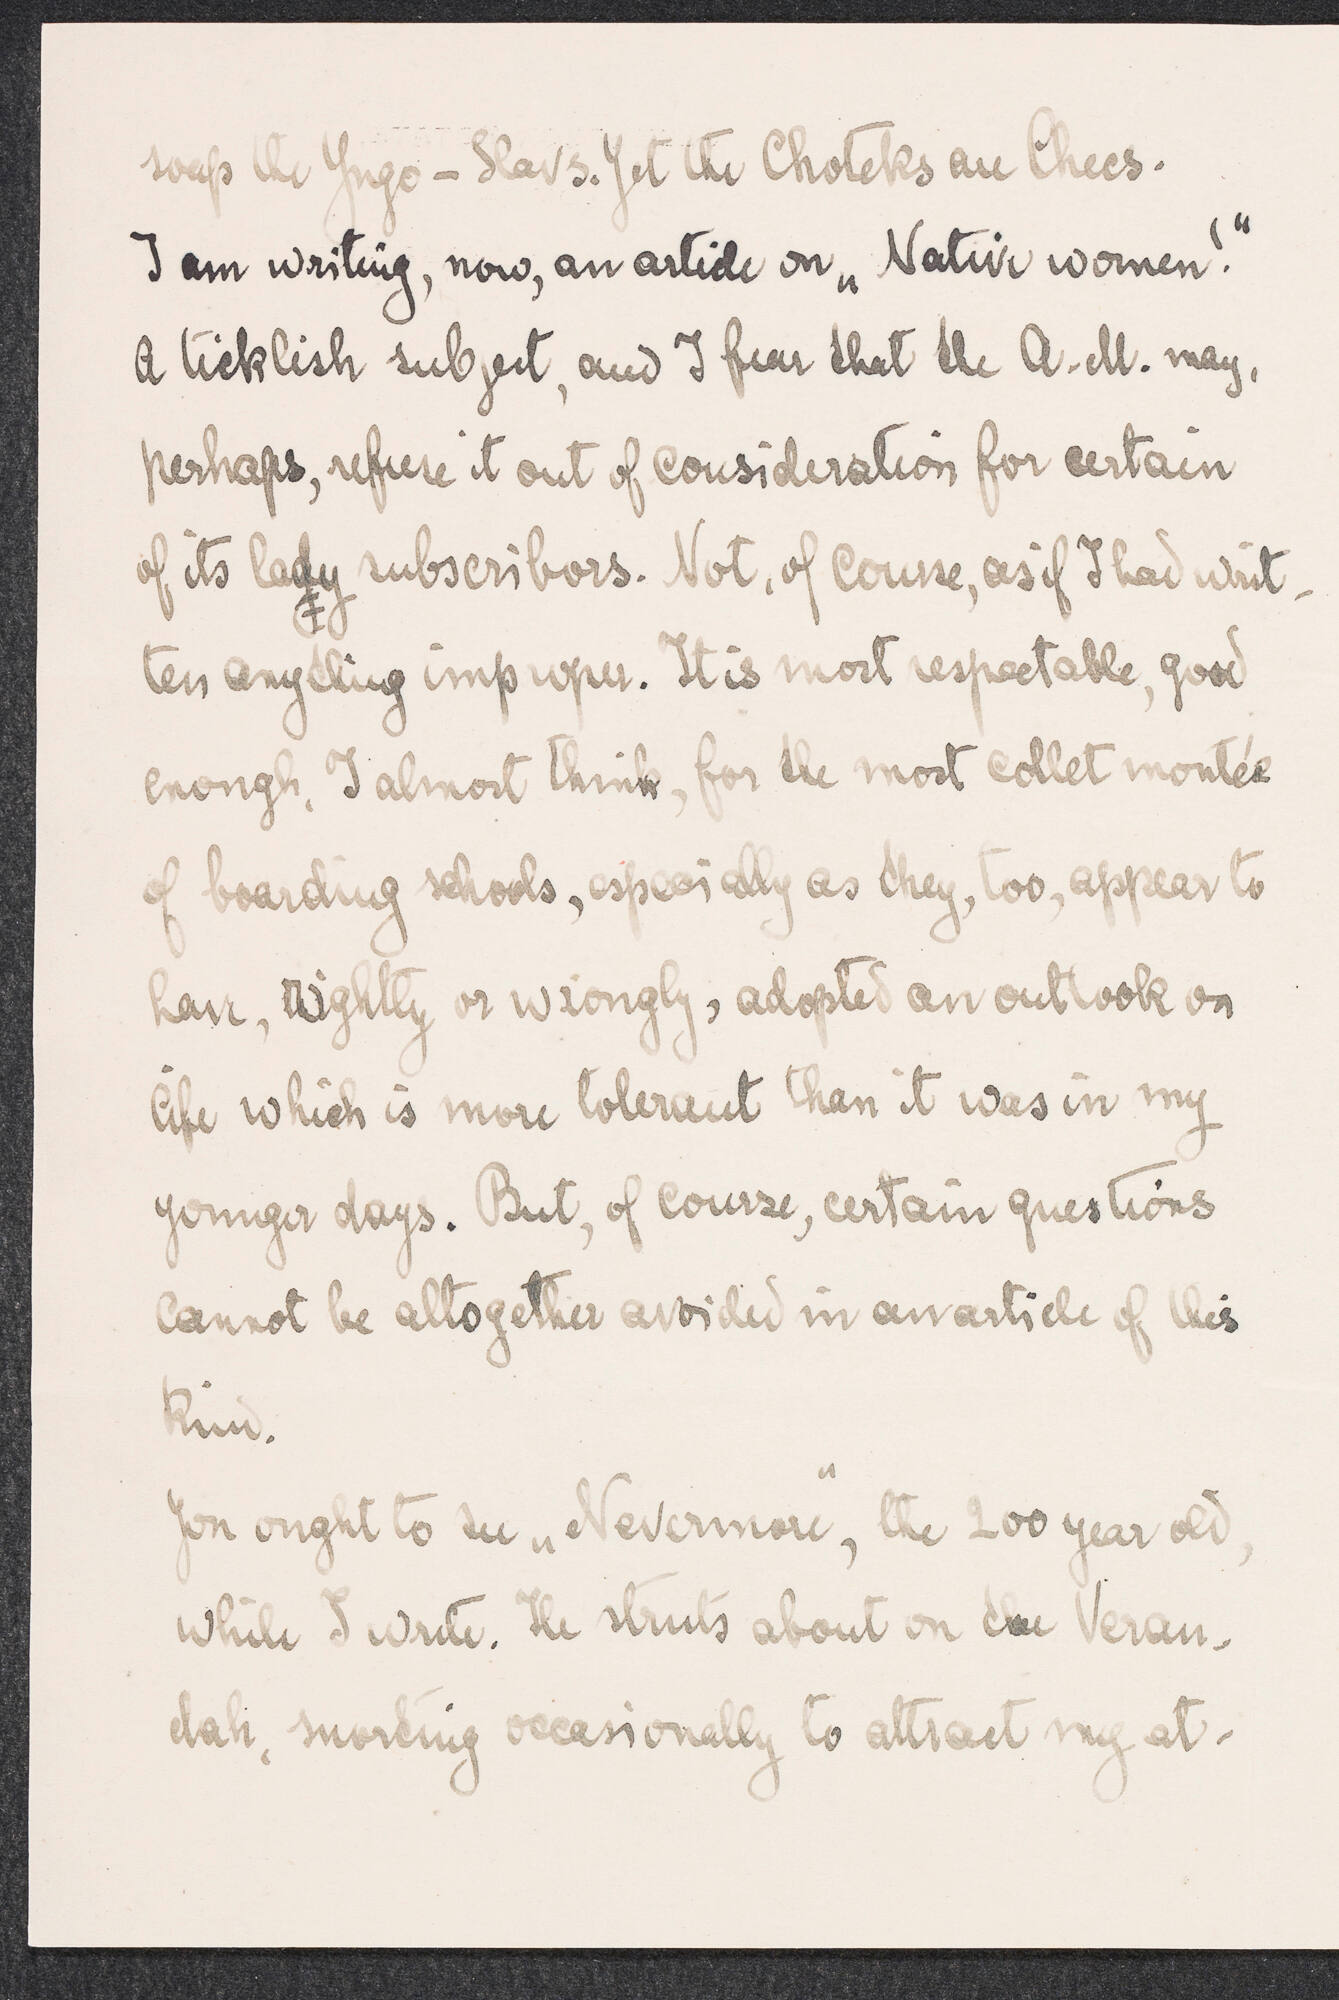 soap the Yugo-Slavs. Yet the Choteks are Checs.
I am writing, now, an article on „Native women!“
A ticklish subject, and I fear that the A.M. may,
perhaps, refuse it out of consideration for certain
of its lady subscribors. Not, of course, as if I had writ-
ten anything improper. It is most respectable, good
enough, I almost think, for the most collet montée
of boarding schools, especially as they, too, appear to
have, rightly or wrongly, adopted an outlook on
life which is more tolerant than it was in my
younger days. But, of course, certain questions
cannot be altogether avoided in an article of this
kind.
You ought to see „Nevermore“, the 200 year old,
while I write. He struts about on the Veran-
dah, snorting occasionally to attract my at-